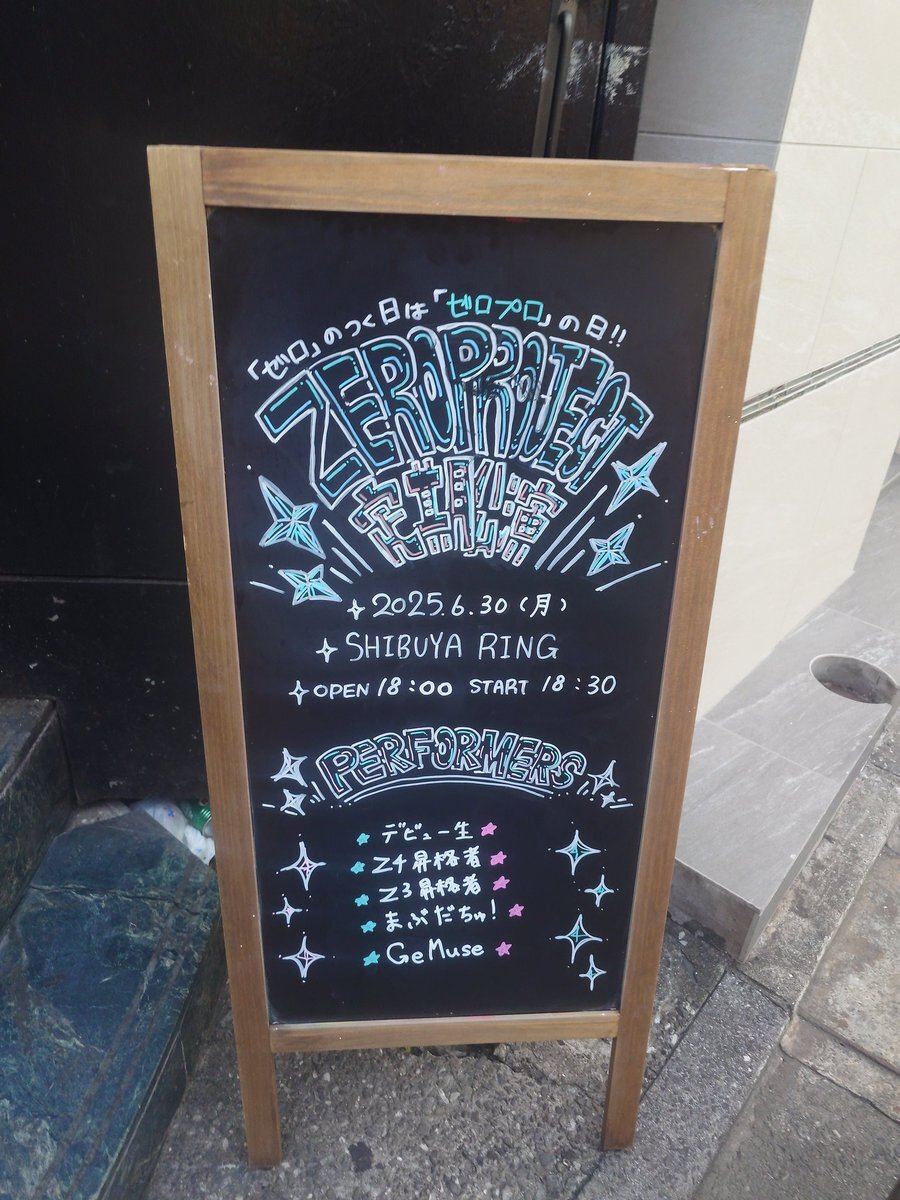 「ゼロ」のつく日は「ゼロプロ」の日!!
ZEROPROJECT
定期公演
2025.6.30(月)
SHIBUYA RING
OPEN 18:00 START 18:30
PERFORMERS
デビュー生
Z4昇格者
Z3昇格者
まぶだちゅ!
GeMuse